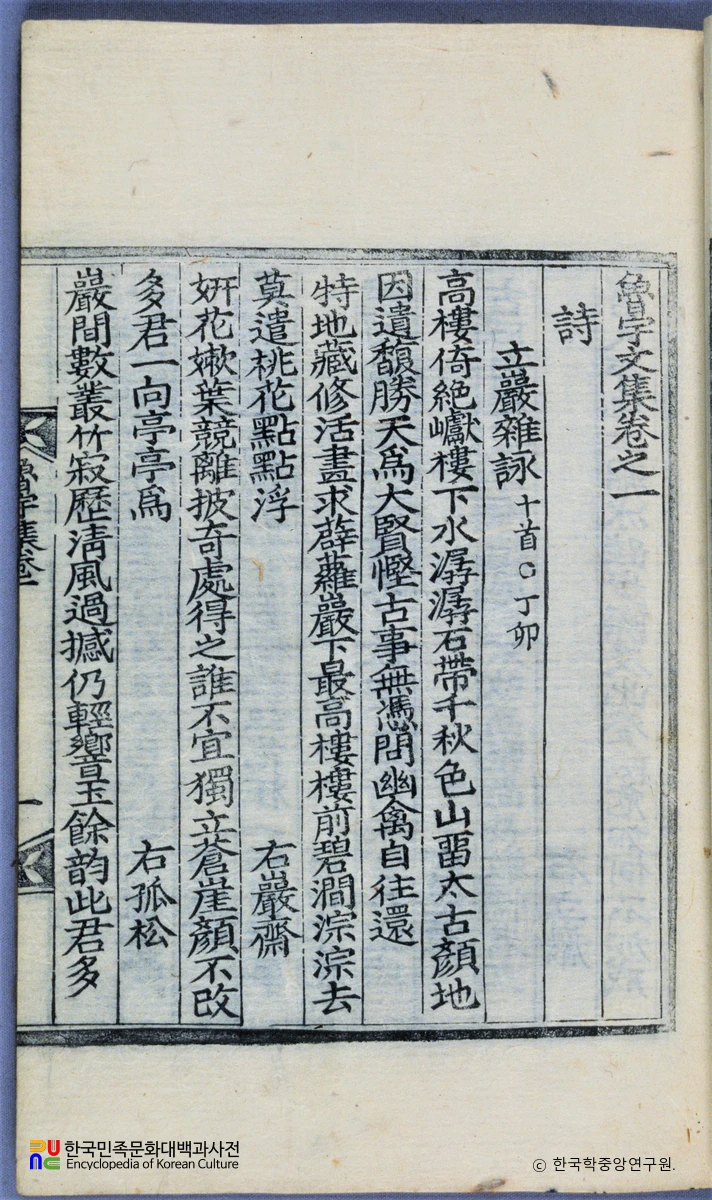 魯宇文集卷之一
詩
立巖雜詠 十首○丁卯
高樓倚絶巘樓下水潺潺石帶千秋色山留太古顔地
因遺馥勝天爲大賢慳古事無憑問幽禽自往還
特地藏修活畫求薜蘿巖下最高樓樓前碧澗淙淙去
莫遣桃花點點浮 右巖齋
姸花嫰葉競離披奇處得之誰不宜獨立蒼崖顔不改
多君一向亭亭爲 右孤松
巖間數叢竹寂歷淸風過撼仍輕響玉餘韵此君多
魯宇集卷一
一
한국민족문화대백과사전
Encyclopedia of Korean Culture
ⓒ 한국학중앙연구원.